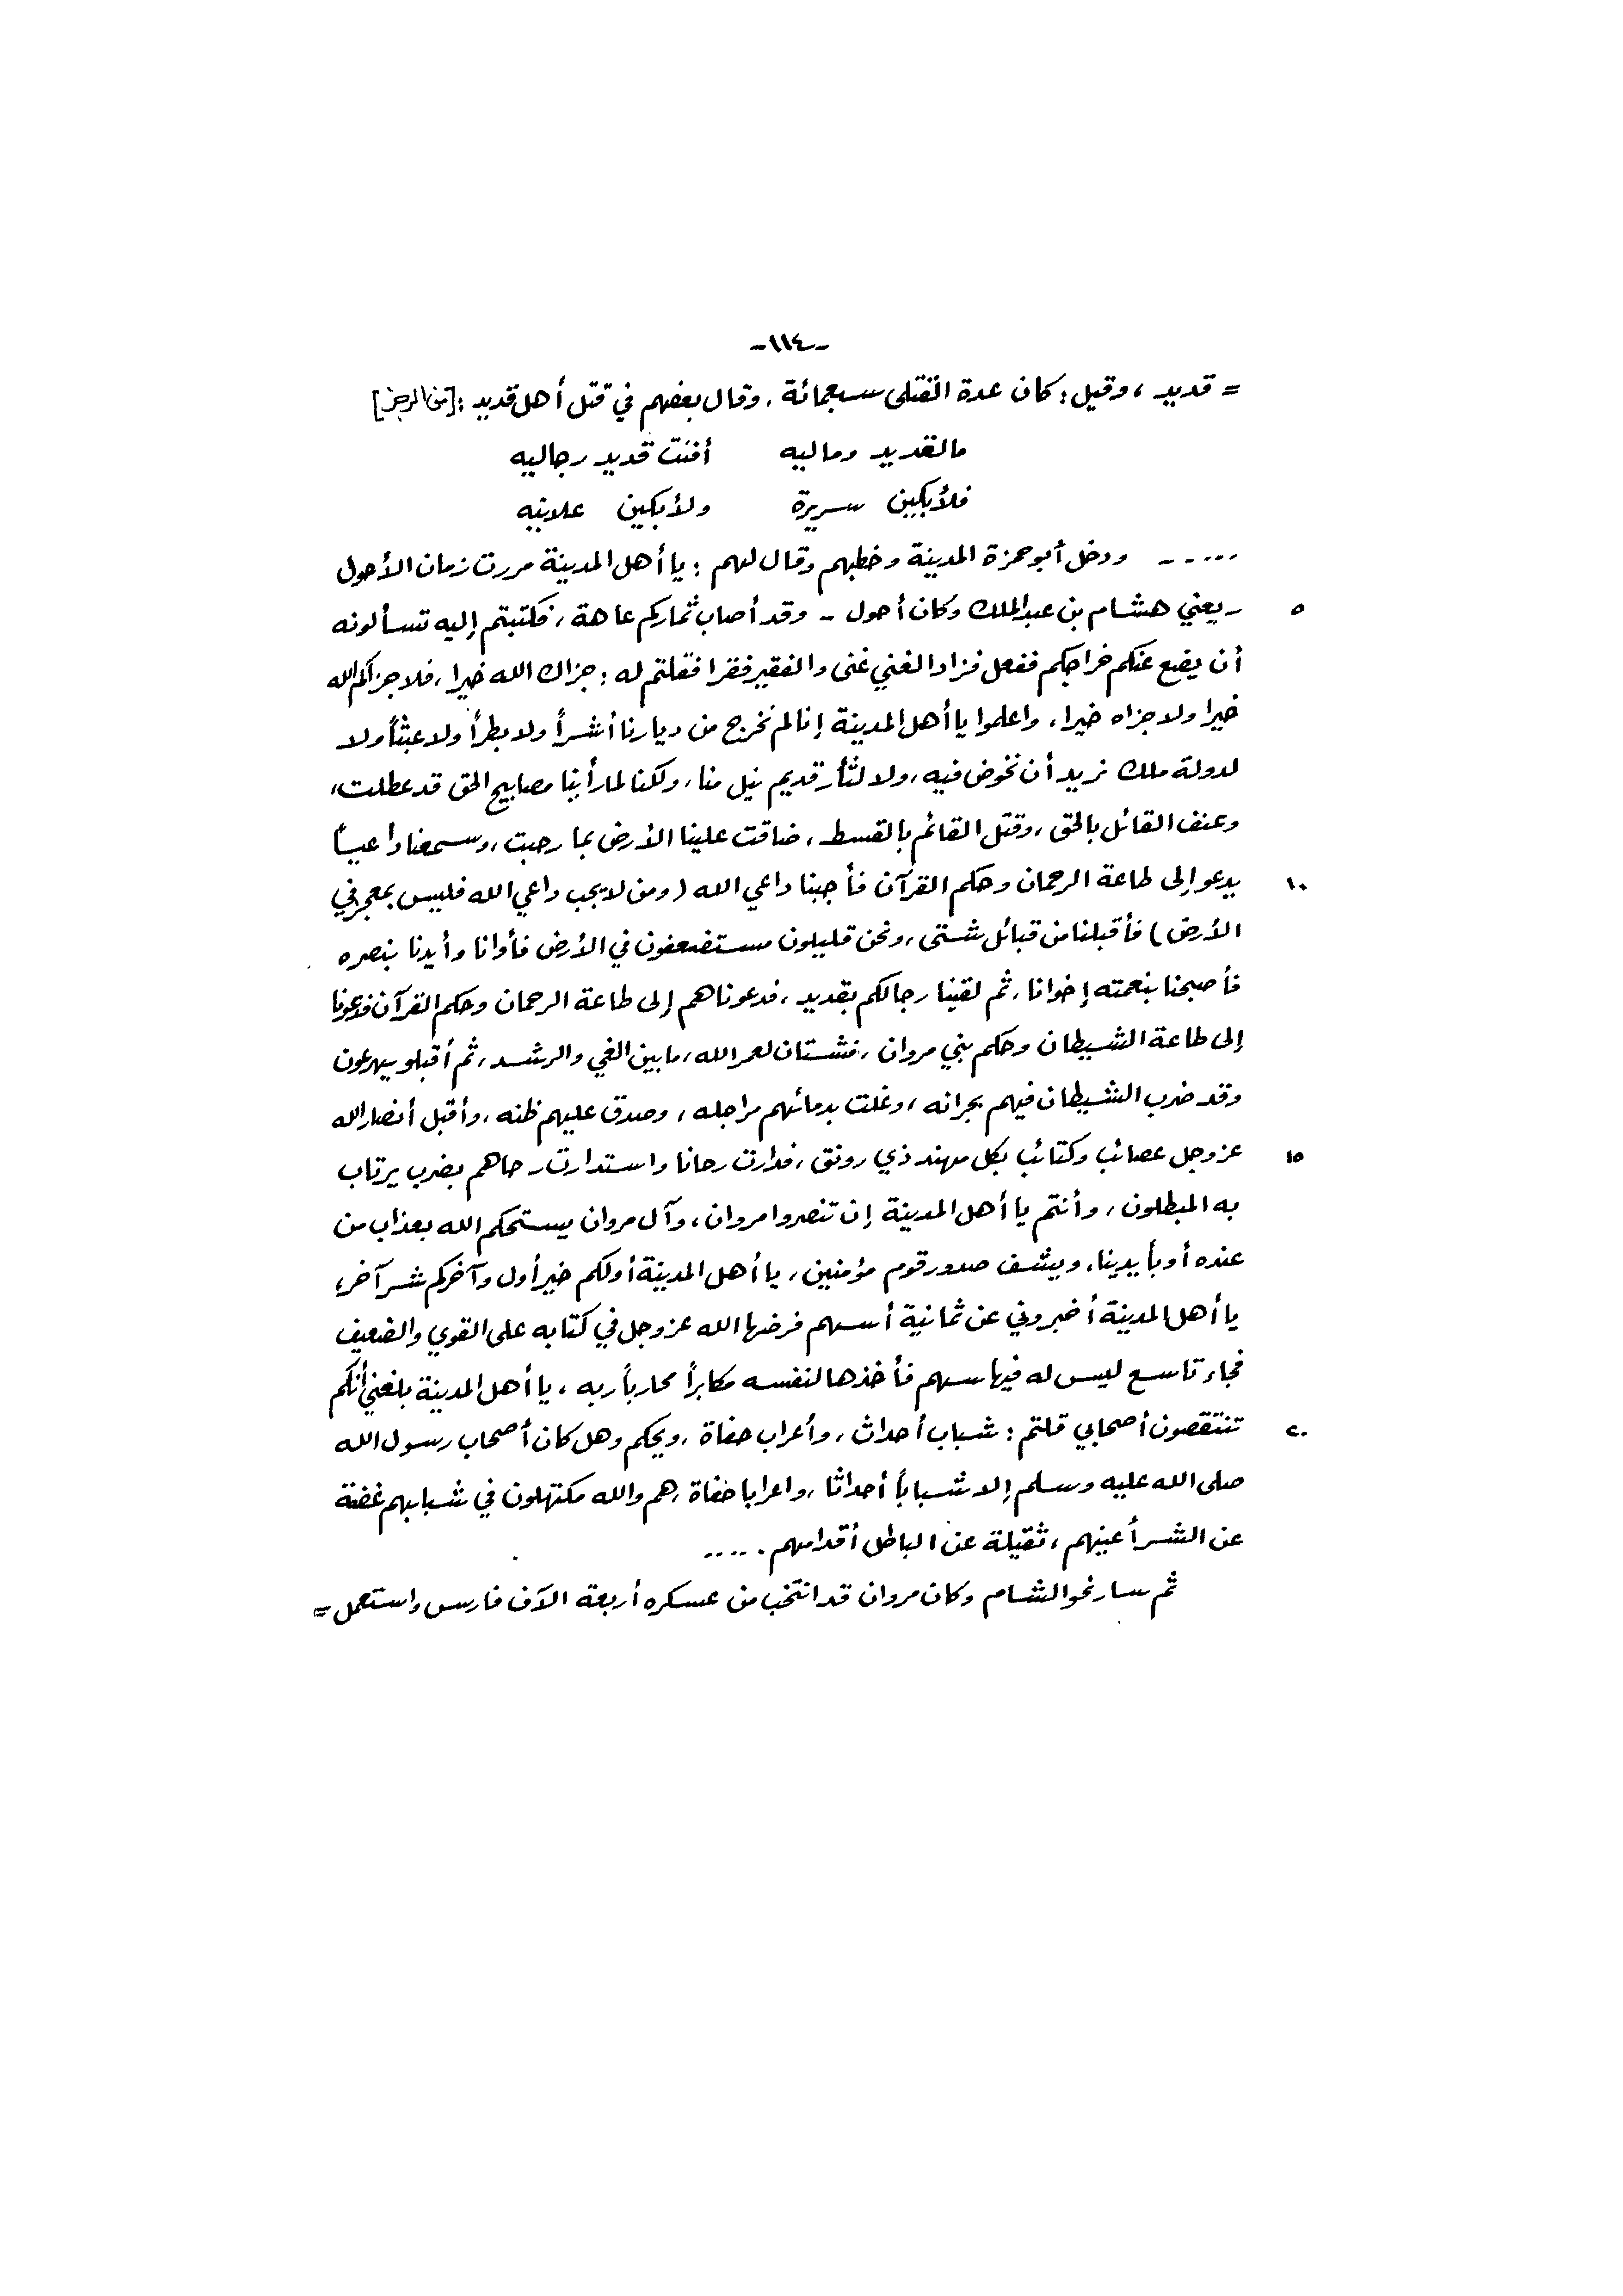 -١١٤-
= قديد ، وقيل : كان عدة القتلى سبعمائة ، وقال بعضهم في قتل أهل قديد : [من الرجز]
مالقديد وماليه أفنت قديد رجاليه
فلأبكين سريرة ولأبكين علانيه
..... ودخل أبو حمزة المدينة وخطبهم وقال لهم : يا أهل المدينة مررت زمان الأحول
٥ - يعني هشام بن عبد الملك وكان أحول - وقد أصاب ثماركم عاهة ، فكتبتم إليه تسألونه
أن يضع عنكم خراجكم ففعل فزاد الغني غنى والفقير فقرا فقلتم له : جزاك الله خيرا ، فلا جزاكم الله
خيرا ولا جزاه خيرا ، واعلموا يا أهل المدينة إنا لم نخرج من ديارنا أشراً ولا بطراً ولا عبثاً ولا
لدولة ملك نريد أن نخوض فيه ، ولا لثأر قديم نيل منا ، ولكنا لما رأينا مصابيح الحق قد عطلت ،
وعنف القائل بالحق ، وقتل القائم بالقسط ، ضاقت علينا الأرض بما رحبت ، وسمعنا داعياً
١٠ يدعو إلى طاعة الرحمان وحكم القرآن فأجبنا داعي الله ( ومن لا يجب داعي الله فليس بمعجز في
الأرض ) فأقبلنا من قبائل شتى ، ونحن قليلون مستضعفون في الأرض فأوانا وأيدنا بنصره
فأصبحنا بنعمته إخوانا ، ثم لقينا رجالكم بقديد ، فدعوناهم إلى طاعة الرحمان وحكم القرآن فدعونا
إلى طاعة الشيطان وحكم بني مروان ، فشتان لعمر الله ، ما بين الغي والرشد ، ثم أقبلو يهرعون
وقد ضرب الشيطان فيهم بجرانه ، وغلت بدمائهم مراجله ، وصدق عليهم ظنه ، وأقبل أنصار الله
١٥ عز وجل عصائب وكتائب بكل مهند ذي رونق ، فدارت رحانا واستدارت رحاهم بضرب يرتاب
به المبطلون ، وأنتم يا أهل المدينة إن تنصروا مروان ، وآل مروان يسحتكم الله بعذاب من
عنده أو بأيدينا ، ويشف صدور قوم مؤمنين ، يا أهل المدينة أولكم خير أول وآخركم شر آخر ،
يا أهل المدينة أخبروني عن ثمانية أسهم فرضها الله عز وجل في كتابه على القوي والضعيف
فجاء تاسع ليس له فيها سهم فأخذها لنفسه مكابراً محارباً ربه ، يا أهل المدينة بلغني أنكم
٢٠ تنتقصون أصحابي قلتم : شباب أحداث ، وأعراب حفاة ، ويحكم وهل كان أصحاب رسول الله
صلى الله عليه وسلم إلا شباباً أحداثا ، واعرابا حفاة ، هم والله مكتهلون في شبابهم غضة
عن الشر أعينهم ، ثقيلة عن الباطل أقدامهم . ....
ثم سار نحو الشام وكان مروان قد انتخب من عسكره أربعة الآف فارس واستعمل =